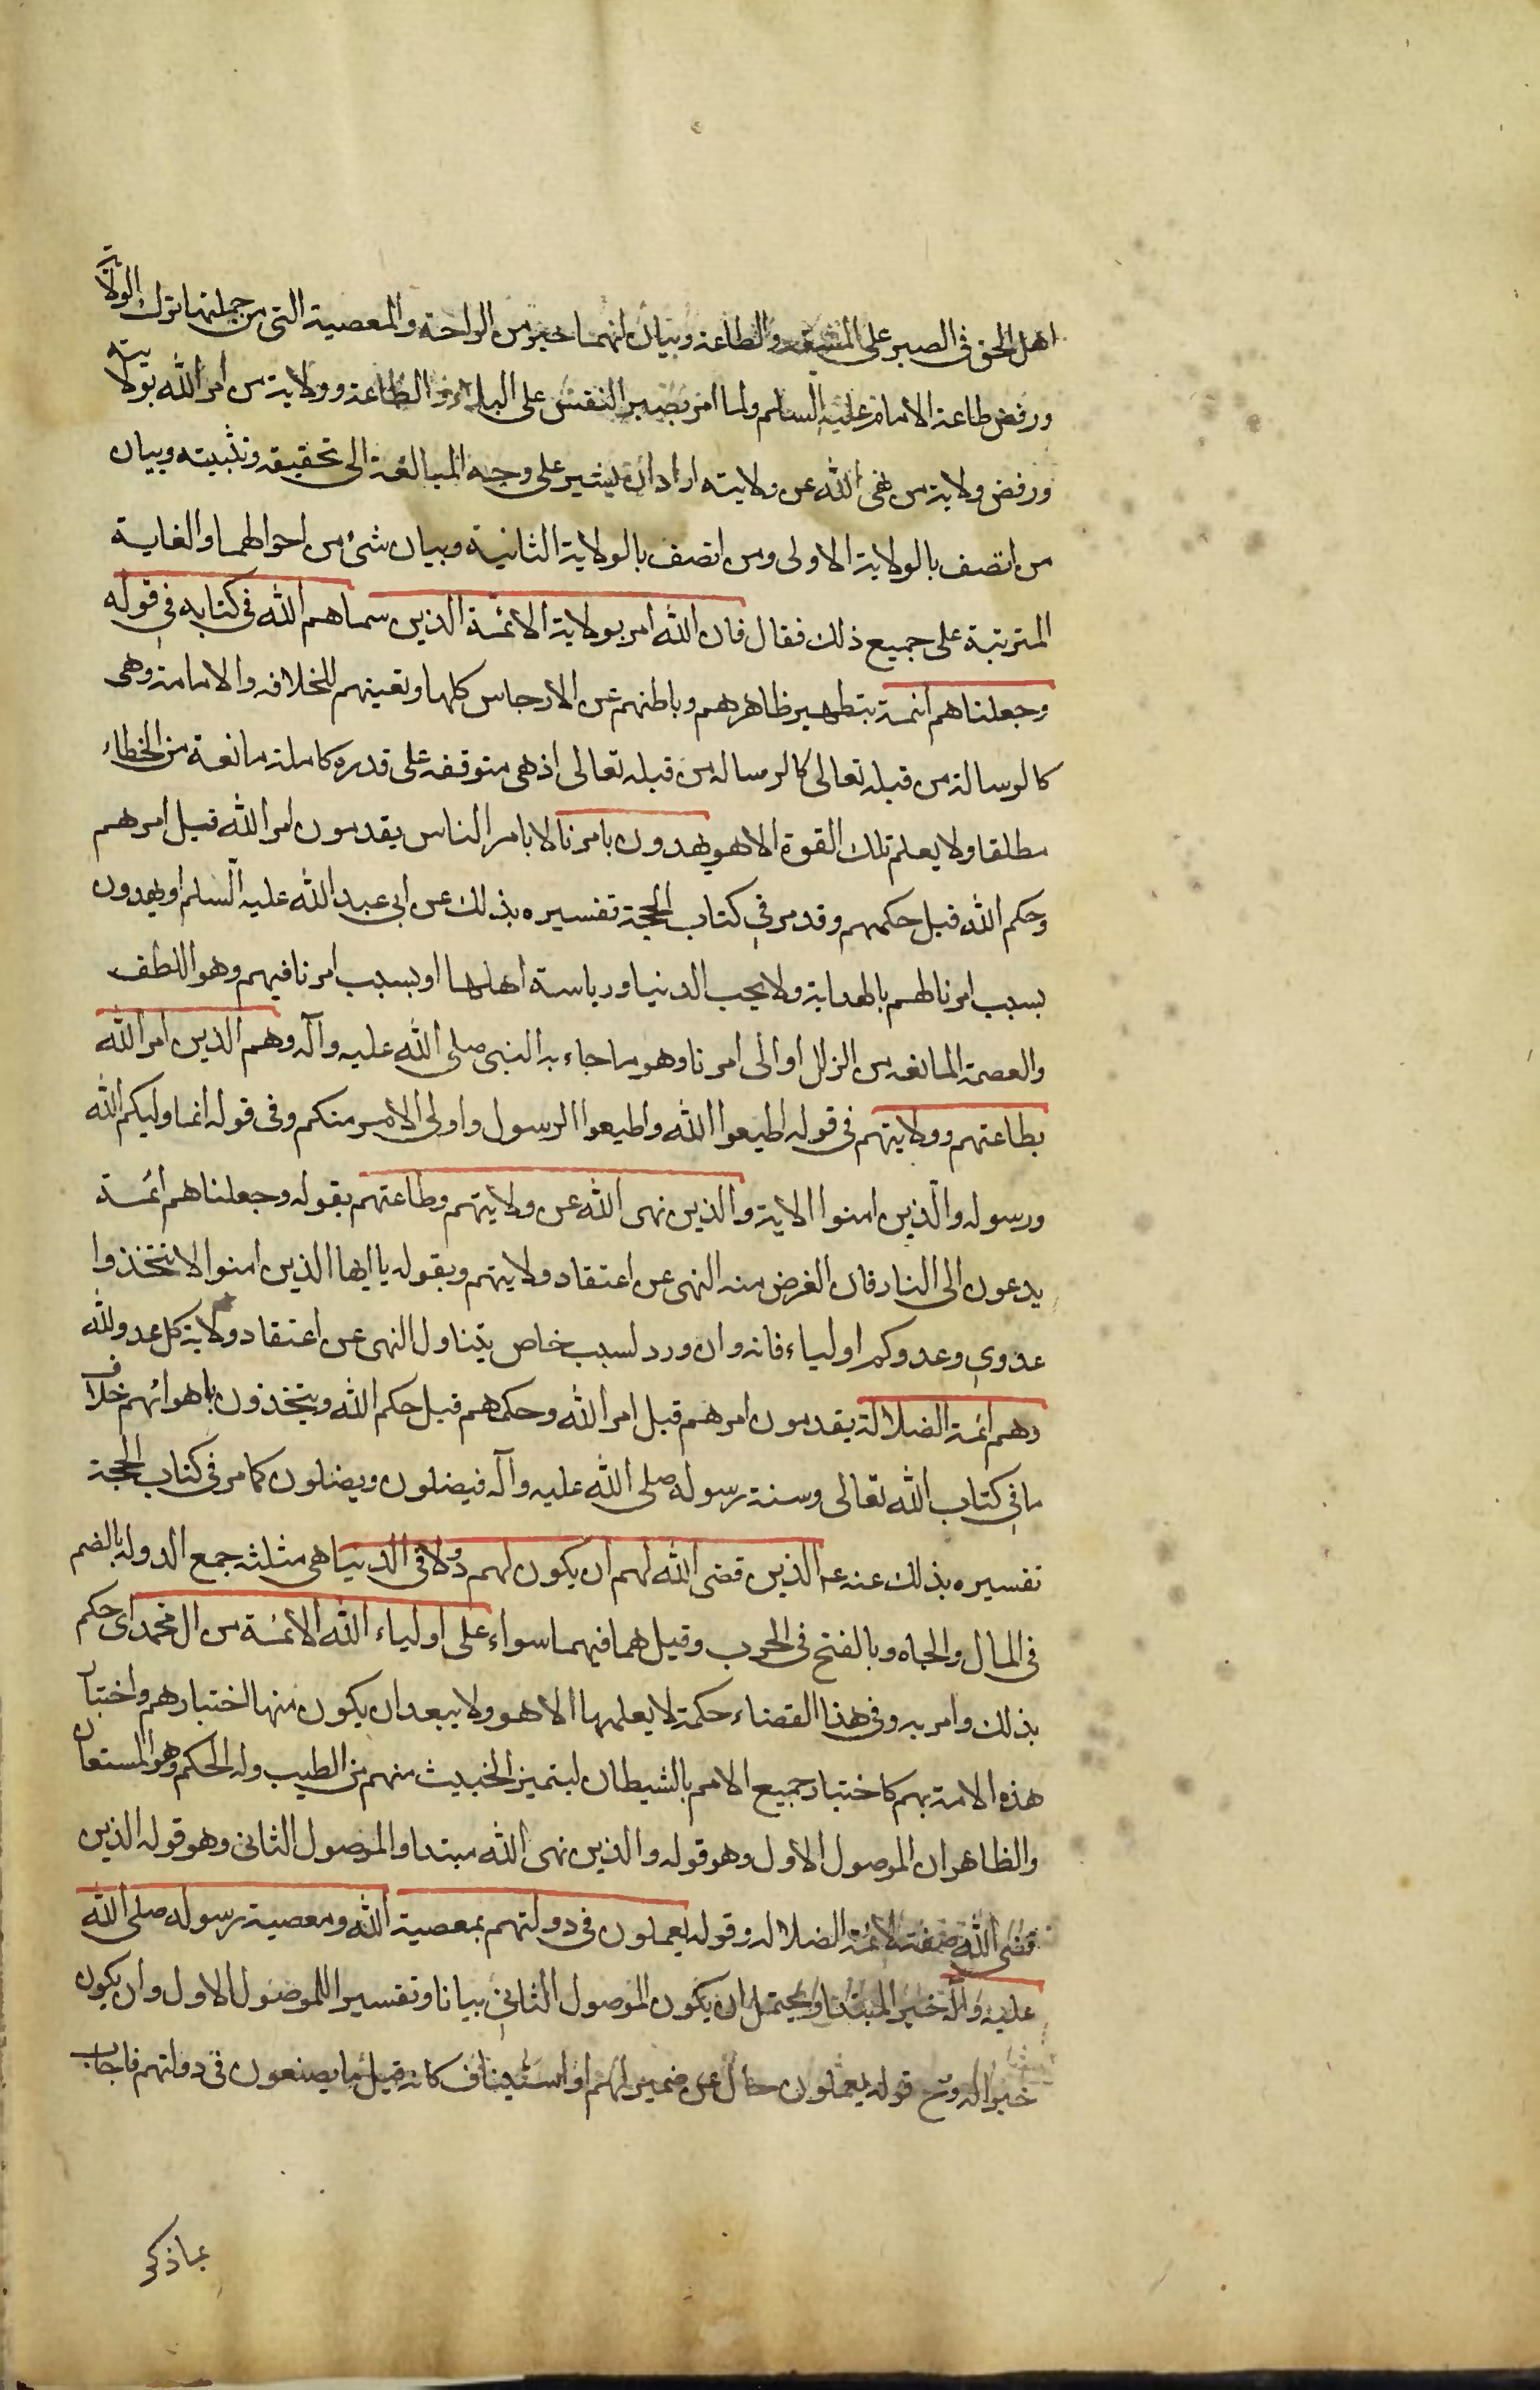 اهل الحق فى الصبر على المشقة والطاعة وبيان انهما خير من الراحة والمعصية التى من جملتها ترك الولاية
ورفض طاعة الامام عليه السلم ولما امر بصبر النفس على البلاء والطاعة وولاية من امر الله بولايته
ورفض ولاية من نهى الله عن ولايته اراد ان يشير على وجه المبالغة الى تحقيقه وتثبيته وبيان
من اتصف بالولاية الاولى ومن اتصف بالولاية الثانية وبيان شئ من احوالهما والغاية
المترتبة على جميع ذلك فقال فان الله امر بولاية الائمة الذين سماهم الله فى كتابه فى قوله
وجعلناهم ائمة بتطهير ظاهرهم وباطنهم عن الارجاس كلها وتعينهم للخلافه والامامة وهى
كالرسالة من قبله تعالى كالرساله من قبله تعالى اذ هى متوقفه على قدره كاملة مانعة من الخطاء
مطلقا ولا يعلم تلك القوة الا هو يهدون بامرنا لا بامر الناس يقدمون امر الله قبل امرهم
وحكم الله قبل حكمهم وقد مر فى كتاب الحجة تفسيره بذلك عن ابى عبد الله عليه السلم او يهدون
بسبب امرنا لهم بالهداية ولا يحب الدنيا ورياسة اهلها او بسبب امرنا فيهم وهو اللطف
والعصمة المانعه من الزلل او الى امرنا وهو ما جاء به النبى صلى الله عليه وآله وهم الذين امر الله
بطاعتهم وولايتهم فى قوله اطيعوا الله واطيعوا الرسول واولى الامر منكم وفى قوله انما وليكم الله
ورسوله والذين امنوا الاية والذين نهى الله عن ولايتهم وطاعتهم بقوله وجعلناهم ائمة
يدعون الى النار فان الغرض منه النهى عن اعتقاد ولايتهم وبقوله يا ايها الذين امنوا لا تتخذوا
عدوى وعدوكم اولياء فانه وان ورد لسبب خاص يتناول النهى عن اعتقاد ولاية كل عدو لله
وهم ائمة الضلالة يقدمون امرهم قبل امر الله وحكمهم قبل حكم الله ويتخذون باهوائهم خلاف
ما فى كتاب الله تعالى وسنة رسوله صلى الله عليه وآله فيضلون ويضلون كما مر فى كتاب الحجة
تفسيره بذلك عنه ع الذين قضى الله لهم ان يكون لهم دولا فى الدنيا هى مثلثه جمع الدوله بالضم
فى المال والجاه وبالفتح فى الحرب وقيل هما فيهما سواء على اولياء الله الائمة من ال محمد اى حكم
بذلك وامر به وفى هذا القضاء حكمة لا يعلمها الا هو ولا يبعد ان يكون منها اختبارهم واختبار
هذه الامة بهم كاختبار جميع الامم بالشيطان ليتميز الخبيث منهم من الطيب وله الحكم وهو المستعان
والظاهر ان الموصول الاول وهو قوله والذين نهى الله مبتدا والموصول الثانى وهو قوله الذين
قضى الله صفة لائمة الضلاله وقوله يعملون فى دولتهم بمعصية الله ومعصية رسوله صلى الله
عليه وآله خبر المبتدا ويحتمل ان يكون الموصول الثانى بيانا وتفسيرا للموصول الاول وان يكون
خبرا له وح قوله يعملون حال عن ضمير لهم او استيناف كانه قيل ما يصنعون فى دولتهم فاجاب
بما ذكر